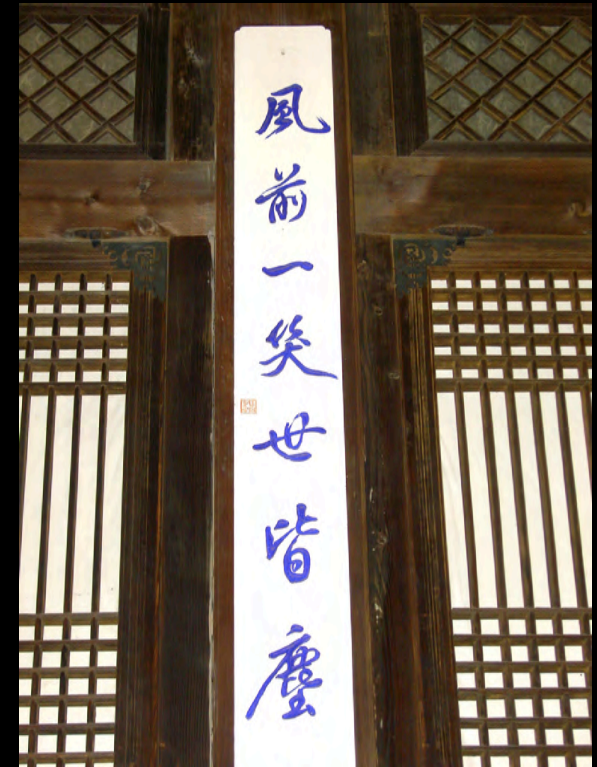 風前一笑世皆塵